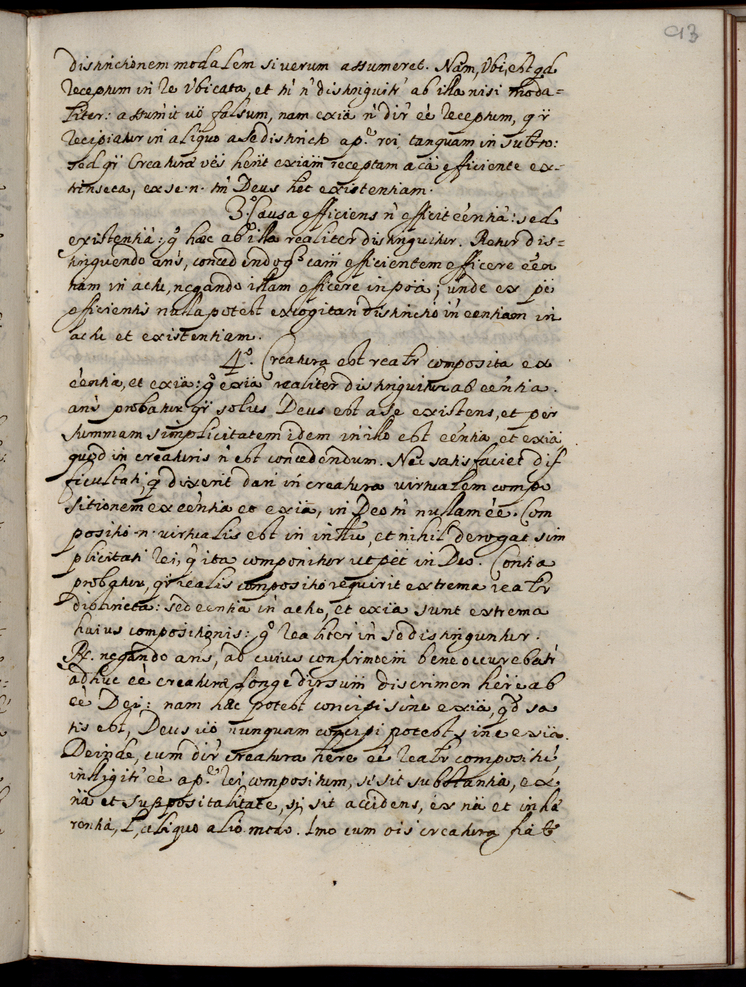 93
distinctionem modalem si verum assumeret. Nam, Vbi, est qd
receptum in re Vbicata, et tñ ñ distinguitr ab illa nisi moda-
liter: assumit uö falsum, nam exiä ñ dir̃ ëe receptum, qr̃
recipiatur in aliquo a se distincto ap.e rei, tanquam in subto:
sed qr̃ Creaturä hent exiam receptam a cä efficiente ex-
trinseca, ex se .n. tñ Deus het existentiam.
3.º Causa efficiens ñ efficit eëntiä: sed
existentiä: gº hæc ab illa realiter distinguitur. Retur dis-
tinguendo añs, concedendo cäm efficientem efficere eën
tiam in actu, negando illam efficere in poä; unde ex pë
efficientis nulla potest excogitari distinctio int eentiam in
actu et existentiam.
4º. Creatura est realr composita ex
eëntia, et exiä: gº exiä realiter distinguitur ab eëntia.
añs probatur qr̃ solus Deus est a se existens, et per
summam simplicitatem idem in illo est eëntia, et exiä
quod in creaturis ñ est concedendum. Nei satisfaciet dif
ficultati, q dixerit dari in creatura uirtualem compo
sitionem ex eëntia et exiä, in Deo tñ nullam ëe. Com
positio .n. uirtualis est in intllu, et nihil derogat sim
plicitati rei, q ita componitur ut pët in Deo. Contiä
probatur, qr̃ realis compositio requirit extrema realr
distincta: sed eentia in actu, et exiä sunt extrema
huius compositionis: gº realiter int se distinguntur.
R. negando añs, ad cuius confirmöem bene occurebatr
adhuc ëe creaturä longe diuersum discrimen herë ab
ëe Dei: nam hæc potest concipi sine exiä, qd sa
tis est, Deus uö nunquam concipi potest sine exiä.
Deinde, cum dir̃ creatura here ëe realr compositü,
intligitr ëe ap.e rei compositum, si sit substantia, ex
nä et suppositalitate, si sit accidens, ex nä et inhæ
rentia, l, aliquo alio modo. Imo cum oïs creatura fiat